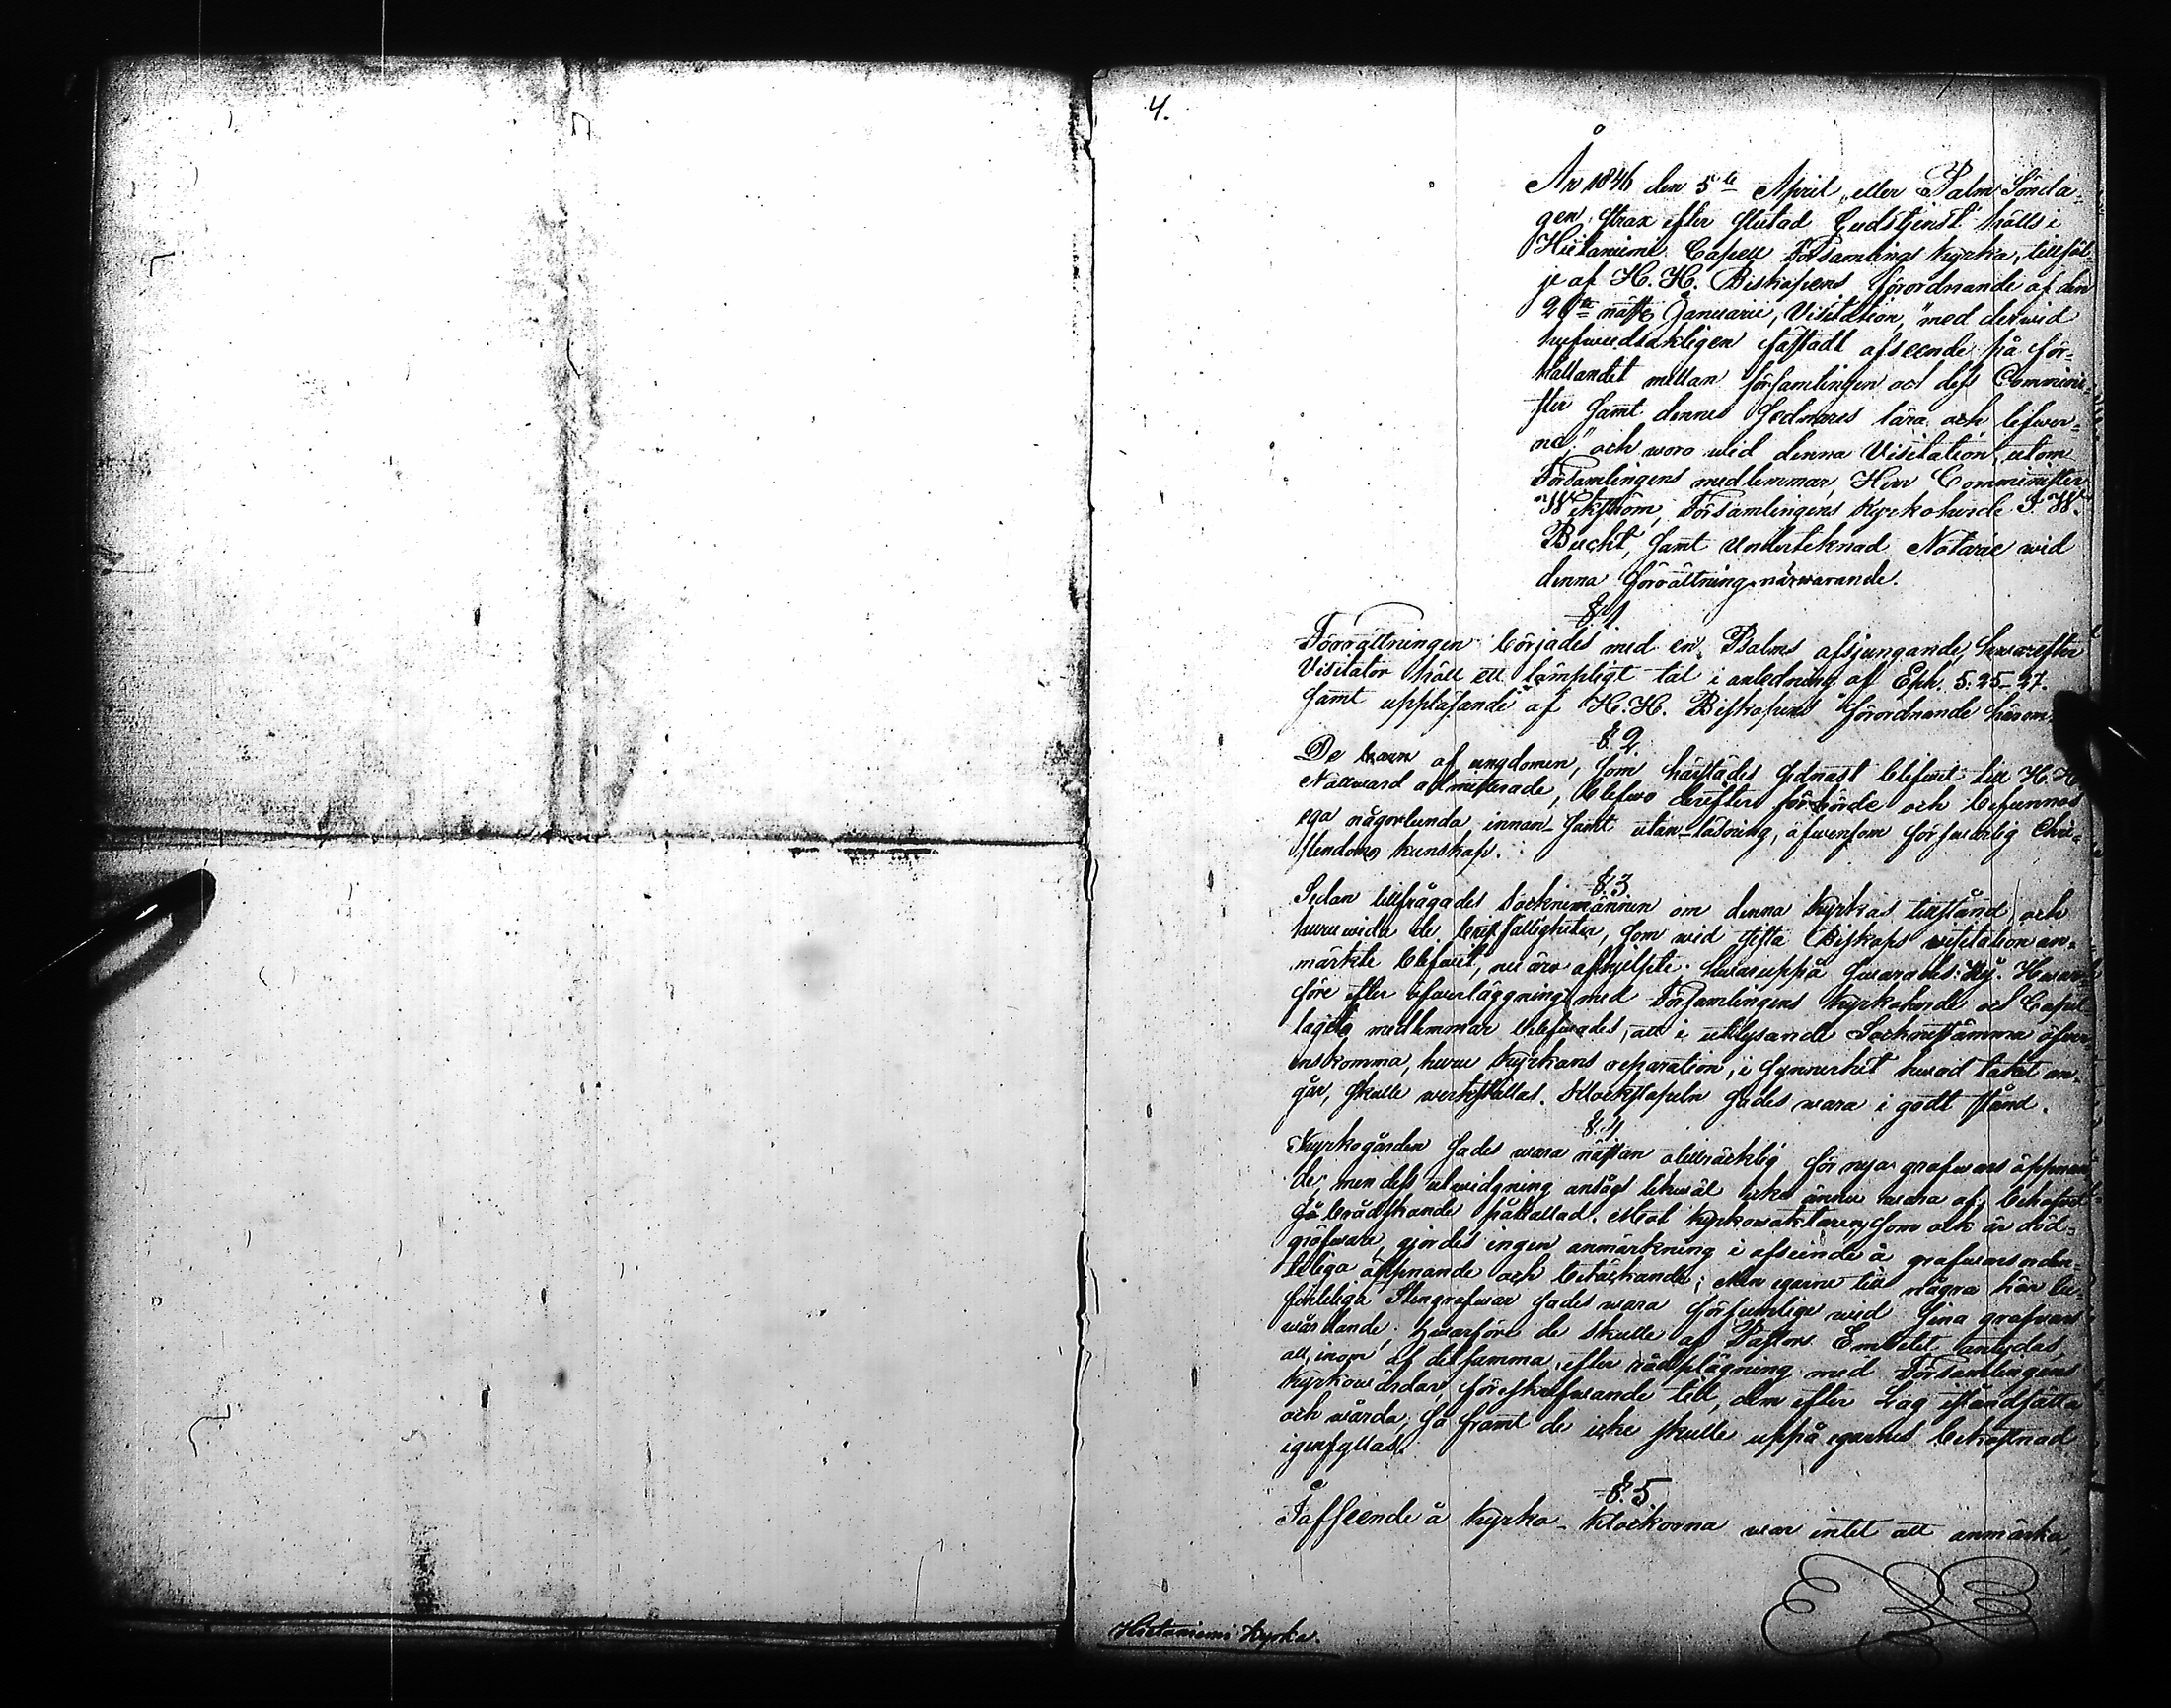 4.
År 1846 den 5te April, eller Palm Sönda-
gen, strax efter slutad Gudstjenst hölls i
Hietaniemi Capell Församlings kyrka, tillföl-
je af H. H. Biskopens förordnande af den
Januarii, Visitation, "med derwid
hufwudsakligen fästadt afseende på för-
hållandet mellan församlingen och dess Commini-
ster samt dennes sednares lära och lefwer-
ne," och woro wid denna Visitation, utom
Församlingens medlemmar, Herr Comminister
Wikström, Församlingens Kyrkoherde J. W.
Bucht, samt Underteknad Notarie wid
denna förrättning närwarande.
§ 1
Förrättningen börjades med en Psalms afsjungande, hwarefter
Visitator höll ett lämpligt tal i anledning af Eph. 5: 25-27.
samt uppläsande af H. H. Biskopens förordnande härom.
§. 2.
De barn af ungdomen, som härstädes sednast blefwit till H. H.
Nattward admitterade, blefwo derefter förhörde och befunnos
ega någorlunda innan- samt utan-läsning, äfwensom förswarlig Chri-
stendoms kunskap.
§. 3
Sedan tillfrågades Socknemännen om denna kyrkas tillstånd, och
huruwida de bristfälligheter, som wid sista Biskops visitation an-
märkte blefwit, nu äro afhjelpte; hwaruppå swarades: Nej. Hwar-
före efter öfwerläggning med Församlingens kyrkoherde och Capell-
lagets medlemmar att i utlysande Socknestämma öfwer-
enskomma, huru kyrkans reparation, i synnerhet hwad taket an-
går, skulle werkställas. Klockstapeln sades wara i godt stånd.
§. 4
Kyrkogården sades wara nästan otillräcklig för nya grafwars öppnan-
de, men dess utwidgning ansågs likwäl icke ännu wara af behofwet
så brådskande påkallad. Mot kyrkowaktaren, som ock är död-
gräfware, gjordes ingen anmärkning i afseende å grafwars orden-
teliga öppnande och betäckande; men egarne till några här be-
fintliga Stengrafwar sades wara försumlige wid sina grafwars
wårdande, hwarföre de skulle af Pastors Embetet antydas,
att, inom af detsamma, efter rådplägning med Församlingens
kyrkowärdar, föreskrifwande tid, dem efter Lag iståndsätta
och wårda, så framt de icke skulle uppå egarnes bekostnad
igenfyllas.
§. 5
I afseende å kyrko-klockorna war intet att anmärka,
Hietaniemi kyrka.